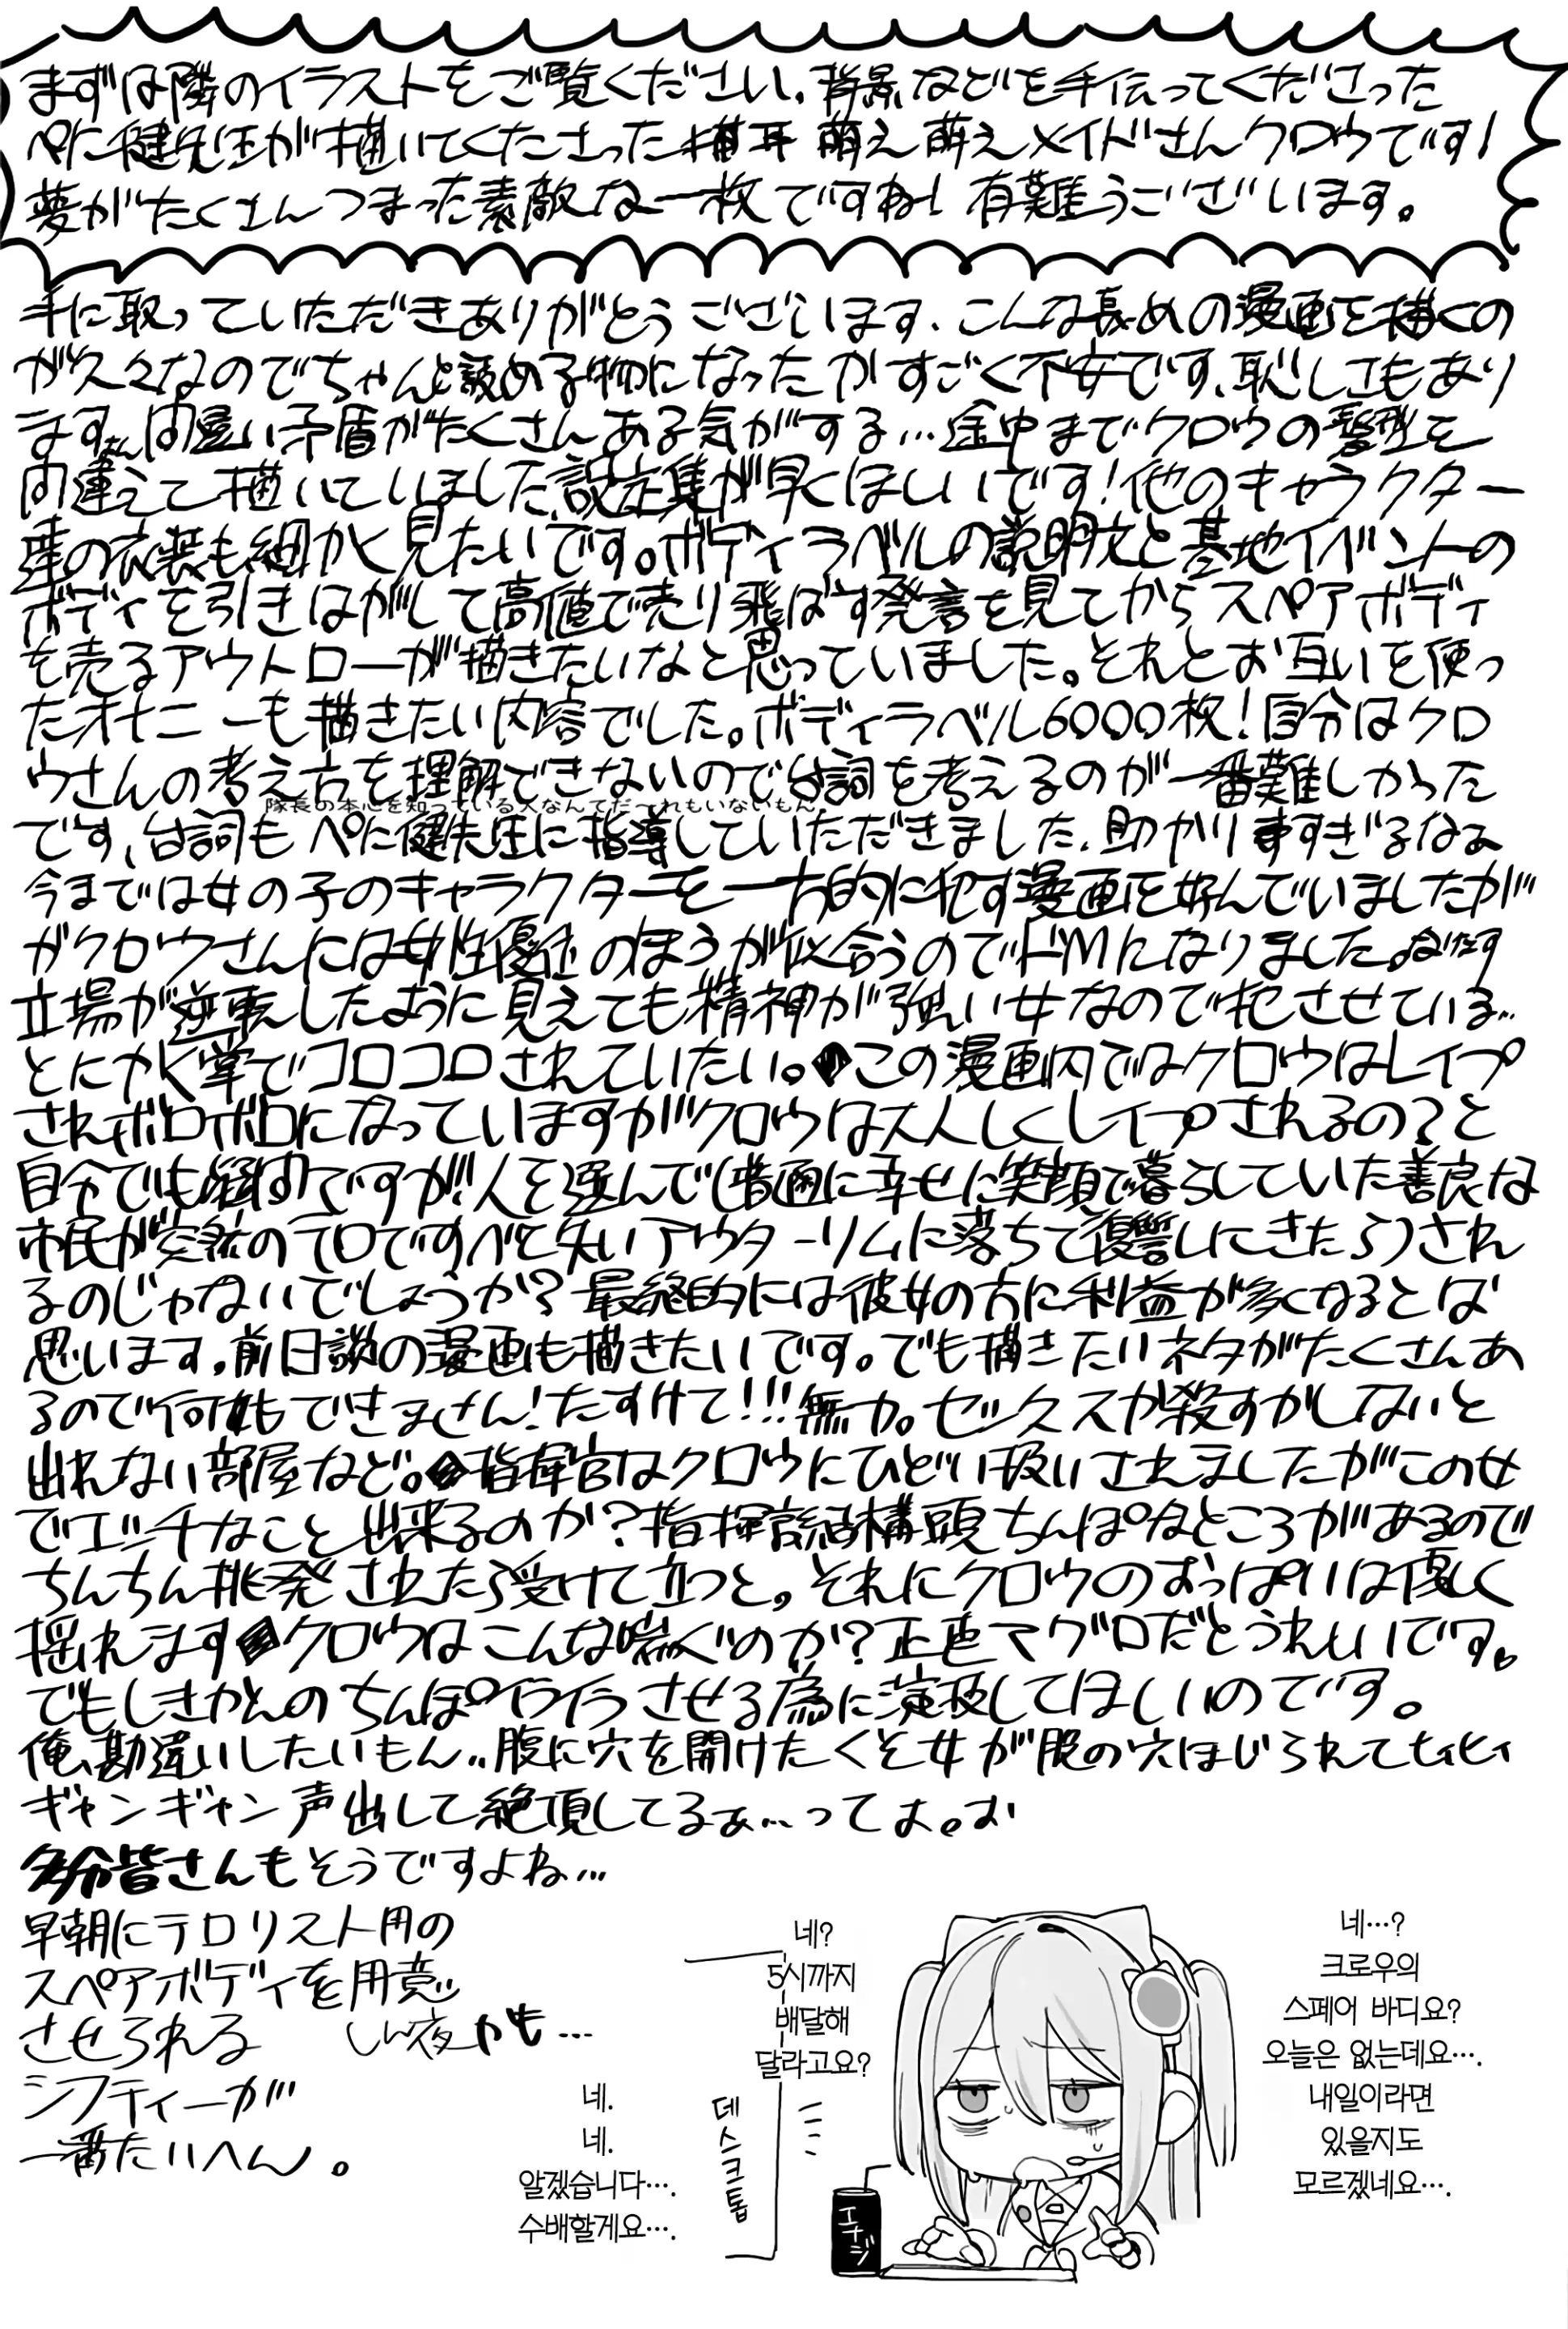 まずは隣のイラストをご覧ください、背景などを手伝ってくださった
ぺに健先生が描いてくださった猫耳 萌え萌えメイドさんクロウです!
夢がたくさんつまった素敵な一枚ですね! 有難うございます。
手に取っていただきありがとうございます、こんな長めの漫画を描くの
が久々なのでちゃんと読める物になったかすごく不安です、恥しさもあり
ます、間違い矛盾がたくさんある気がする…途中までクロウの髪型を
間違えて描いていました、設定集が早くほしいです!他のキャラクター
達の衣装も細かく見たいです。ボディラベルの説明文と基地イベントの
ボディを引きはがして高値で売り飛ばす発言を見てからスペアボディ
を売るアウトローが描きたいなと思っていました。それとお互いを使っ
たオナニーも描きたい内容でした。ボディラベル6000枚!自分はクロ
ウさんの考え方を理解できないので台詞を考えるのが一番難しかった
隊長の本心を知っている人なんてだ〜れもいないもん
です、台詞も ぺに健先生に指導していただきました、助かりますすぎるなぁ
今までは女の子のキャラクターを一方的に犯す漫画を好んでいましたが
がクロウさんには女性優位のほうが似合うのでドMになりました。
立場が逆転したように見えても精神が強い女なので犯させている…
とにかく掌でコロコロされていたい。この漫画内ではクロウはレイプ
されボロボロになっていますがクロウは大人しくレイプされるの?と
自分でも疑問ですが!!人を選んで(普通に幸せに笑顔で暮らしていた善良な
市民が突然のテロですべて失いアウターリムに落ちて復讐しにきたら)され
るのじゃないでしょうか?最終的には彼女の方に利益が多くなるとは
思います。前日談の漫画も描きたいです。でも描きたいネタがたくさんあ
るので何もできません!たすけて!!!無力。セックスか殺すかしないと
出れない部屋など。指揮官はクロウにひどい扱いされましたがこの女
でエッチなこと出来るのか?指揮官結構頭ちんぽなところがあるので
ちんちん挑発されたら受けて立つと。それにクロウのおっぱいは優しく
揺れますクロウはこんな喘ぐのか?正直マグロだとうれしいです。
でもしきかんのちんぽイライラさせる為に演技してほしいのです。
俺、勘違いしたいもん..腹に穴を開けたくそ女が股の穴ほじられてヒィヒィ
ギャンギャン声出して絶頂してるぁ…ってよ。お
多分皆さんもそうですよね…
早朝にテロリスト用の
スペアボディを用意
させられる しん夜かも…
シフティーが
一番たいへん。
네…?
크로우의
스페어 바디요?
오늘은 없는데요….
내일이라면
있을지도
모르겠네요….
네?
5시까지
배달해
달라고요?
네.
네.
알겠습니다….
수배할게요….
데스크톱
エナジ